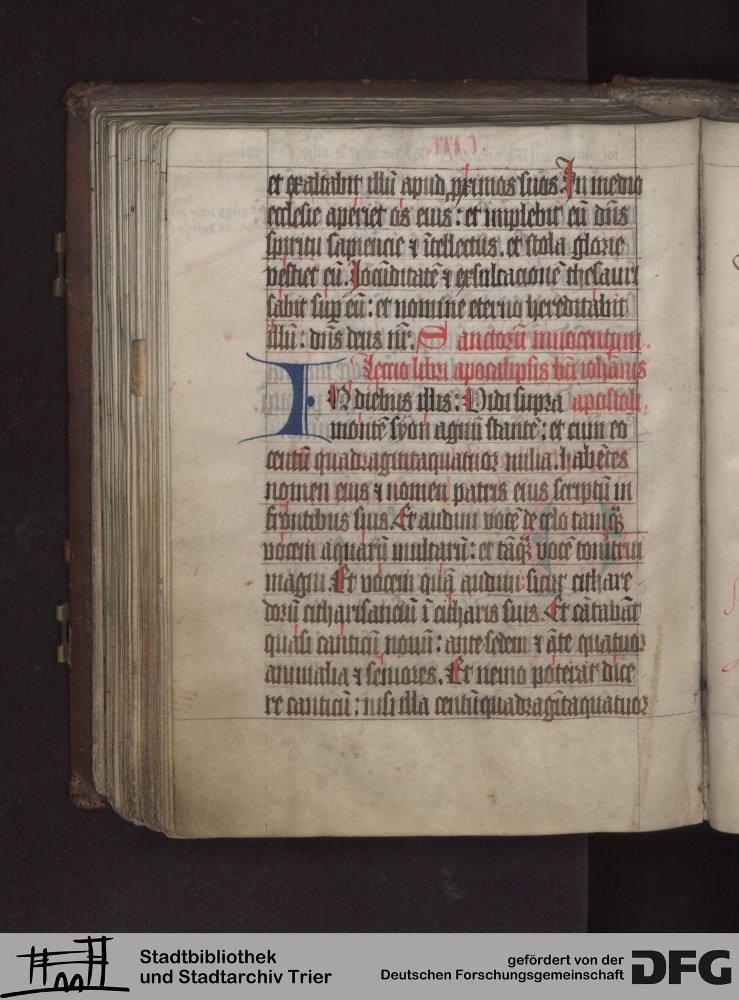 et exaltabit illū apud ꝓximos suos. In medio
ecclesie aperiet os eius: et implebit eū dn̄s
spiritu sapiencie ⁊ ītellectus. et stola glorie
vestiet eū. Iocūditatē ⁊ exsultacionē thesauri
sabit suꝑ eū: et nomine eterno hereditabit
illū: dn̄s deus nr̄. Sanctorū innocentum.
Lectio libri apocalipsis bt̄i iohānis
IN diebus illis: Vidi supra apostoli.
montē syon agnū stantē: et cum eo
centū quadragintaquatuor milia. habētes
nomen eius ⁊ nomen patris eius scriptū in
frontibus suis. Et audiui vocē de celo tanqȝ
vocem aquarū multarū: et tāqȝ vocē tonitrui
magni. Et vocem quā audiui sicut cithare
dorū citharisanciū ī citharis suis. Et cātabāt
quasi canticū nouū: ante sedem ⁊ āte quatuor
animalia ⁊ seniores. Et nemo poterat dice
re canticū: nisi illa centūquadragītaquatuor
Stadtbibliothek
und Stadtarchiv Trier
gefördert von der
Deutschen Forschungsgemeinschaft
DFG